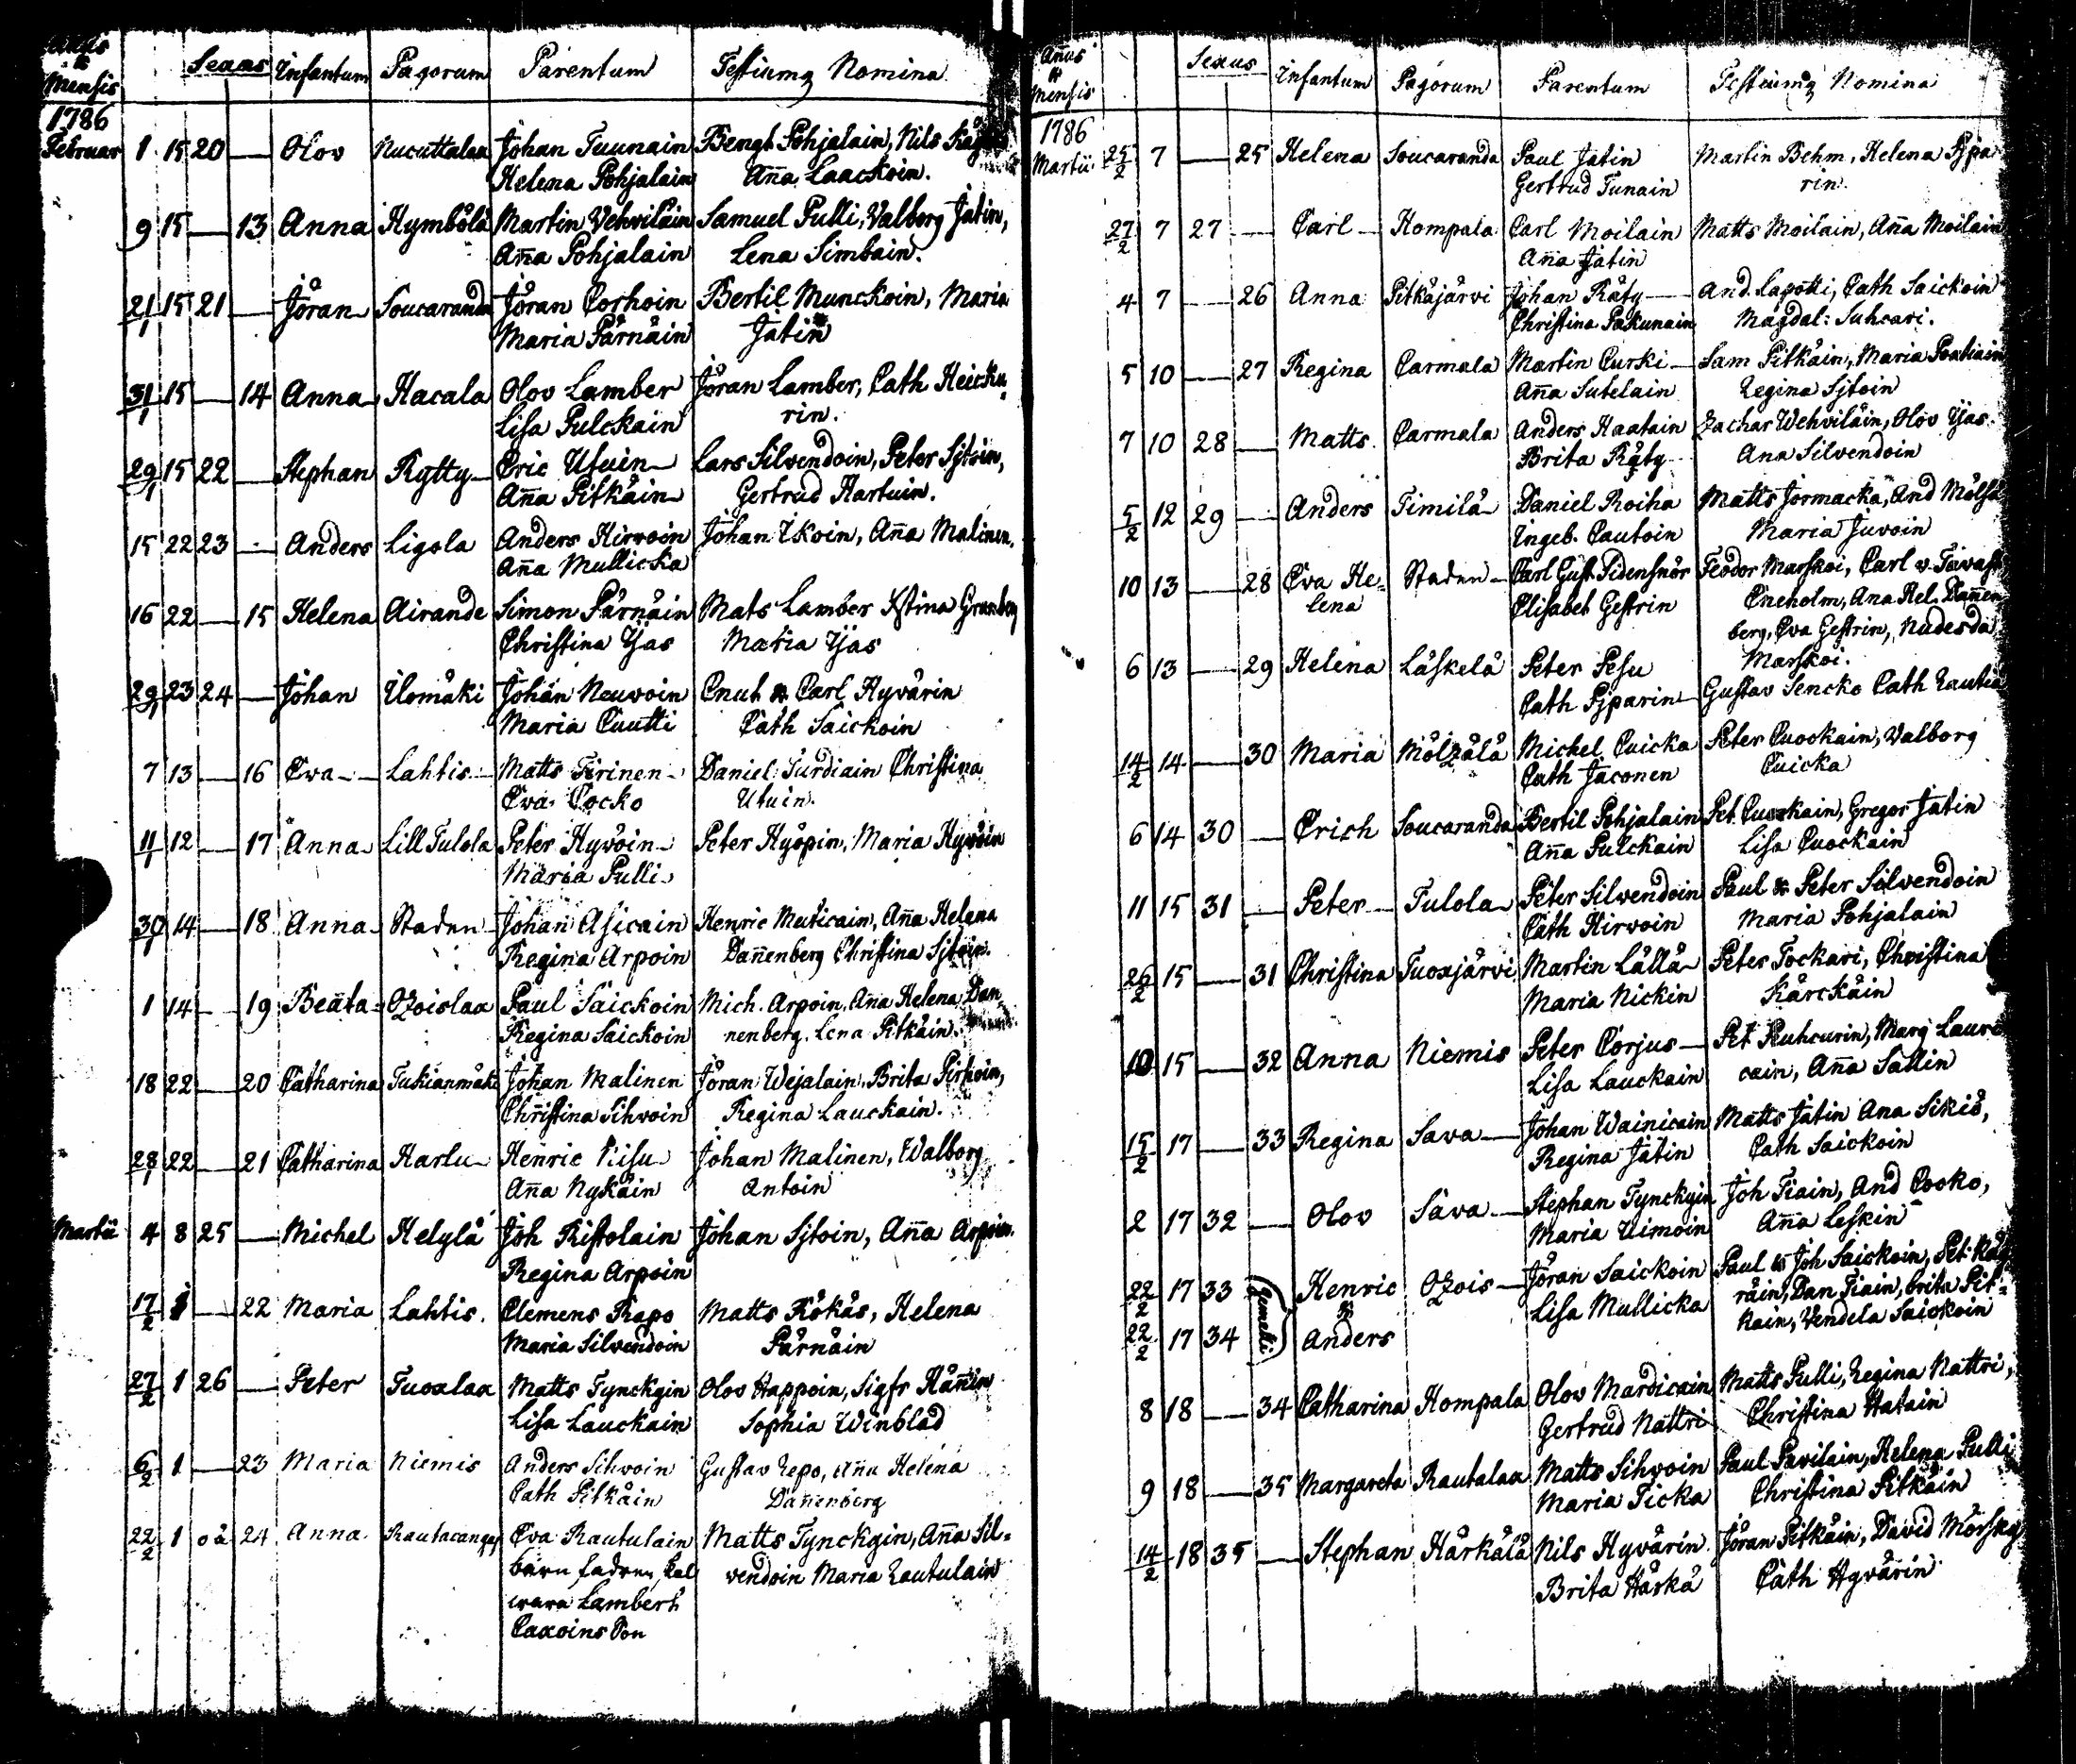 Annus & Mensis Sexus Infantum Pagorum Parentum Testiumq Nomina
1786
Februar 1 15 20 — Olov Nucuttalax Johan Tuunain Bengt Pohjalain, Nils
Helena Pohjalain Aña Laackoin.
9 15 — 13 Anna Hymbölä Martin Vehvilain Samuel Pulli, Valborg Jatin,
Aña Pohjalain Lena Simbain.
21/1 15 21 — Jöran Soucaranda Jöran Corhoin Bertil Munckoin, Maria
Maria Pärnäin Jatin
31/1 15 — 14 Anna Hacala Olov Lamber Jöran Lamber, Cath Heicku-
Lisa Pulckain rin.
29/1 15 22 — Stephan Rytty Eric Utuin Lars Silvendoin, Peter Sjtoin,
Aña Pitkäin Gertrud Hartuin.
15 22 23 — Anders Ligola Anders Hirvoin Johan Ikoin, Aña Malinen.
Aña Mullicka
16 22 — 15 Helena Airande Simon Pärnäin Mats Lamber Kstina Granberg
Christina Yjas Maria Yjas
29/1 23 24 — Johan Ilomäki Johan Neuvoin Cnut & Carl Hyvärin
Maria Cuutti Cath Saickoin
7 13 — 16 Eva Lahtis Matts Tirinen Daniel Surdiain Christina
Eva Cocko Utuin.
11/1 12 — 17 Anna Lill Tulola Peter Hyvöin Peter Hyöpin, Maria Hyvöin
Maria Pulli
30/1 14 — 18 Anna Staden Johan Asicain Henric Muticain, Aña Helena
Regina Arpoin Dañenberg Christina Sjtoin.
1 14 — 19 Beata Ozoislax Paul Saickoin Mich. Arpoin, Aña Helena Dan-
Regina Saickoin nenberg. Lena Pitkäin.
18 22 — 20 Catharina Tukianmäki Johan Malinen Jöran Wejalain, Brita Pirhoin,
Christina Sihvoin Regina Lauckain.
28/1 22 — 21 Catharina Harlu Henric Kisu Johan Malinen, Walborg
Aña Nykäin Antoin
Martii 4 8 25 — Michel Helylä Joh Ristolain Johan Sjtoin, Aña Arpoin.
Regina Arpoin
17/2 1 — 22 Maria Lahtis. Clemens Rapo Matts Rökäs, Helena
Maria Silvendoin Pärnäin
27/2 1 26 — Peter Tuoxlax Matts Tynckyin Olov Happoin, Sigfr Häñin
Lisa Lauckain Sophia Winblad
6/2 1 — 23 Maria Niemis Anders Sihvoin Gustav Repo, Aña Helena
Cath Pitkäin Dañenberg
22/2 1 oä 24 Anna Rautacangas Eva Rautulain Matts Tynckyin, Aña Sil-
barn fadren, kal vendoin Maria Rautulain
Lambert
Caxoins Son
Añus & Mensis Sexus Infantum Pagorum Parentum Testiumq Nomina
1786
Martii 25/2 7 — 25 Helena Soucaranda Paul Jatin Martin Behm, Helena Pjpa
Gertrud Tunain rin.
27/2 7 27 — Carl Hompala Carl Moilain Matts Moilain, Aña Moilain
Aña Jatin
4 7 — 26 Anna Pitkäjärvi Johan Räty And. Lapotti, Cath Saickoin
Christina Pakunain Magdal: Suhcari.
5 10 — 27 Regina Carmala Martin Curki Sam Pitkäin, Maria Poutiain
Aña Sutelain Regina Sjtoin
7 10 28 — Matts Carmala Anders Haatain Zachar Wehviläin, Olov Yjas.
Brita Räty Ana Silvendoin
5/2 12 29 — Anders Timilä Daniel Roiha Matts Jormacka, And Mölsä
Ingeb. Cautoin Maria Juvoin
10 13 — 28 Eva He- Staden Carl Gust Tidensnör Feodor Marskoi, Carl v. Tavast
lena Elisabet Gestrin Eneholm, Ana Hel. Dañen
berg, Eva Gestrin, Nadesda
Marskoi.
6 13 — 29 Helena Läskelä Peter Pesu Gustav Sencko Cath Rautia
Cath Pjparin
14/2 14 — 30 Maria Mölzälä Michel Cuicka Peter Cuockain, Valborg
Cath Jaconen Cuicka
6 14 30 — Erich Soucaranda Bertil Pohjalain Pet Cuockain, Gregor Jatin
Aña Pulckain Lisa Cuockain
11 15 31 — Peter Tulola Peter Silvendoin Paul & Peter Silvendoin
Cath Hirvoin Maria Pohjalain
26/2 15 — 31 Christina Tuoxjärvi Martin Lällä Peter Tockari, Christina
Maria Nickin Kärckäin
10 15 — 32 Anna Niemis Peter Corjus Pet Puhcurin, Marg Lauri
Lisa Lauckain cain, Aña Sallin
15/2 17 — 33 Regina Sava Johan Wainicain Matts Jatin Ana Sikiö,
Regina Jatin Cath Saickoin
2 17 32 — Olov Sava Stephan Tynckyin Joh Tiain, And Cocko,
Maria Uimoin Aña Leskin
22/2 17 33 Gemelli Henric Ozois Jöran Saickoin Paul & Joh Saickoin, Pet. Käg
& Lisa Mullicka räin, Dan Tiain, Brita Pit-
22/2 17 34 Anders kain, Vendela Saickoin
8 18 — 34 Catharina Hompala Olov Mardicain Matts Pulli, Regina Nattri,
Gertrud Nattri Christina Hatain
9 18 — 35 Margareta Rautalax Matts Sihvoin Paul Pavilain, Helena Pulli
Maria Ticka Christina Pitkäin
14/2 18 35 — Stephan Härkälä Nils Hyvärin Jöran Pitkäin, David Mörsky
Brita Härkä Cath Hyvärin